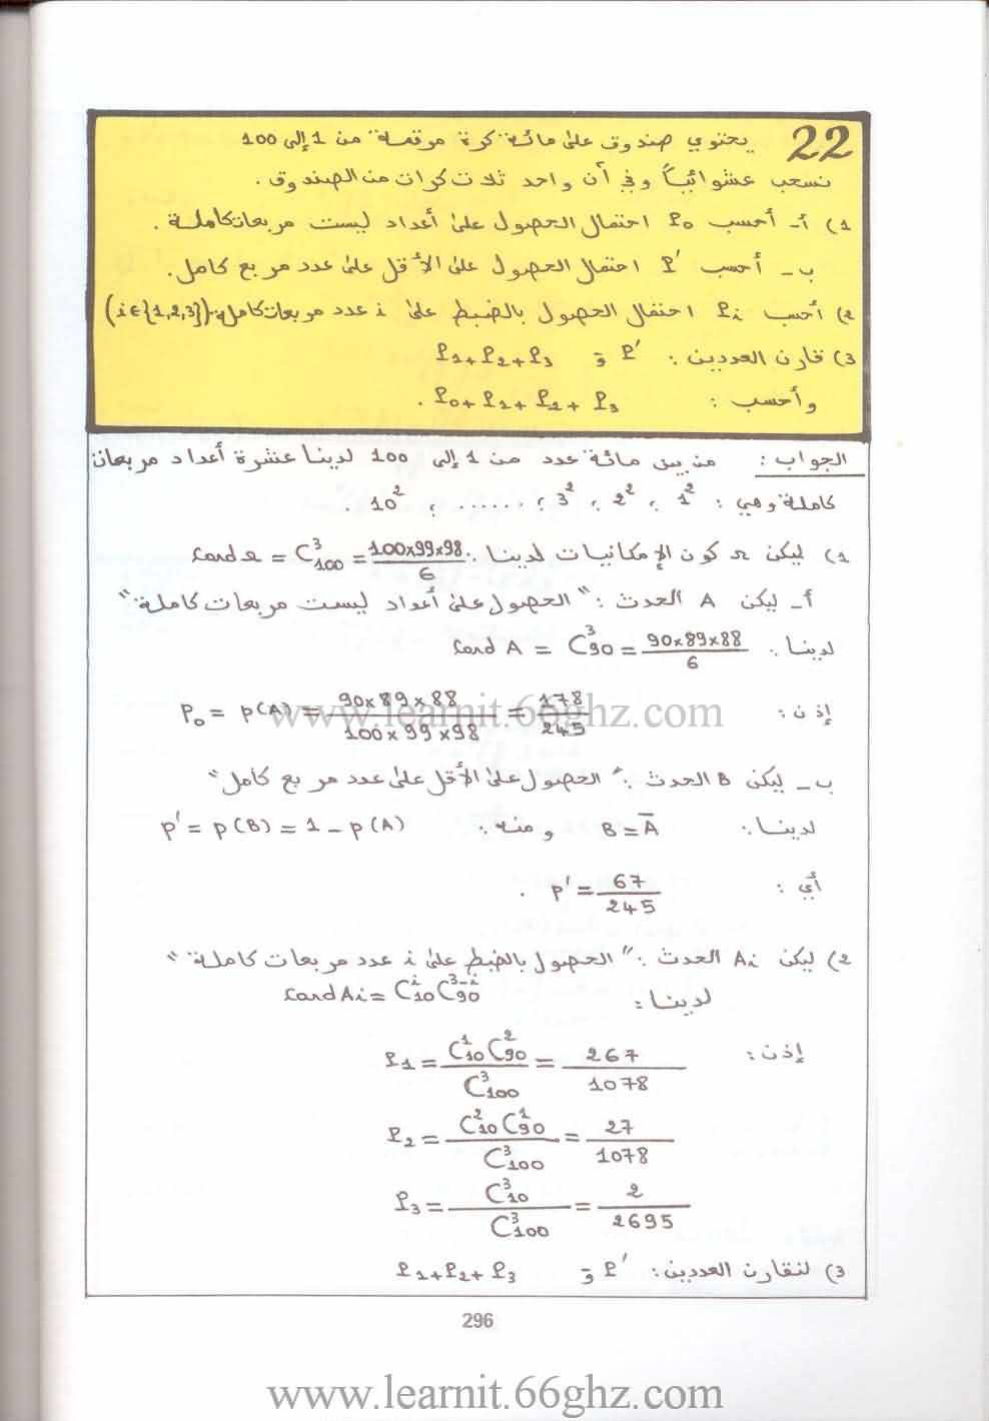 22 يحتوي صندوق على مائة كرة مرقمة من 1 إلى 100
نسحب عشوائياً وفي آن واحد ثلاث كرات من الصندوق.
1) أ- أحسب P₀ احتمال الحصول على أعداد ليست مربعات كاملة.
ب- أحسب P' احتمال الحصول على الأقل على عدد مربع كامل.
2) أحسب Pᵢ احتمال الحصول بالضبط على i عدد مربعات كاملة. (i∈{1,2,3})
3) قارن العددين: P' و P₁+P₂+P₃
وأحسب: P₀+P₁+P₂+P₃.
الجواب: من بين مائة عدد من 1 إلى 100 لدينا عشرة أعداد مربعات
كاملة وهي: 1² ؛ 2² ؛ 3² ؛ ...... ؛ 10².
1) ليكن Ω كون الإمكانيات لدينا: card Ω = C³₁₀₀ = 100×99×98/6
أ- ليكن A الحدث: "الحصول على أعداد ليست مربعات كاملة"
لدينا: card A = C³₉₀ = 90×89×88/6
إذن: P₀ = p(A) = 90×89×88/100×99×98 = 178/245
www.learnit.66ghz.com
ب- ليكن B الحدث: "الحصول على الأقل على عدد مربع كامل"
لدينا: B = A̅ ومنه: p' = p(B) = 1 - p(A)
أي: p' = 67/245.
2) ليكن Aᵢ الحدث: "الحصول بالضبط على i عدد مربعات كاملة"
لدينا: card Aᵢ = Cⁱ₁₀ C³⁻ⁱ₉₀
إذن: P₁ = C¹₁₀ C²₉₀/C³₁₀₀ = 267/1078
P₂ = C²₁₀ C¹₉₀/C³₁₀₀ = 27/1078
P₃ = C³₁₀/C³₁₀₀ = 2/2695
3) لنقارن العددين: P' و P₁+P₂+P₃
296
www.learnit.66ghz.com